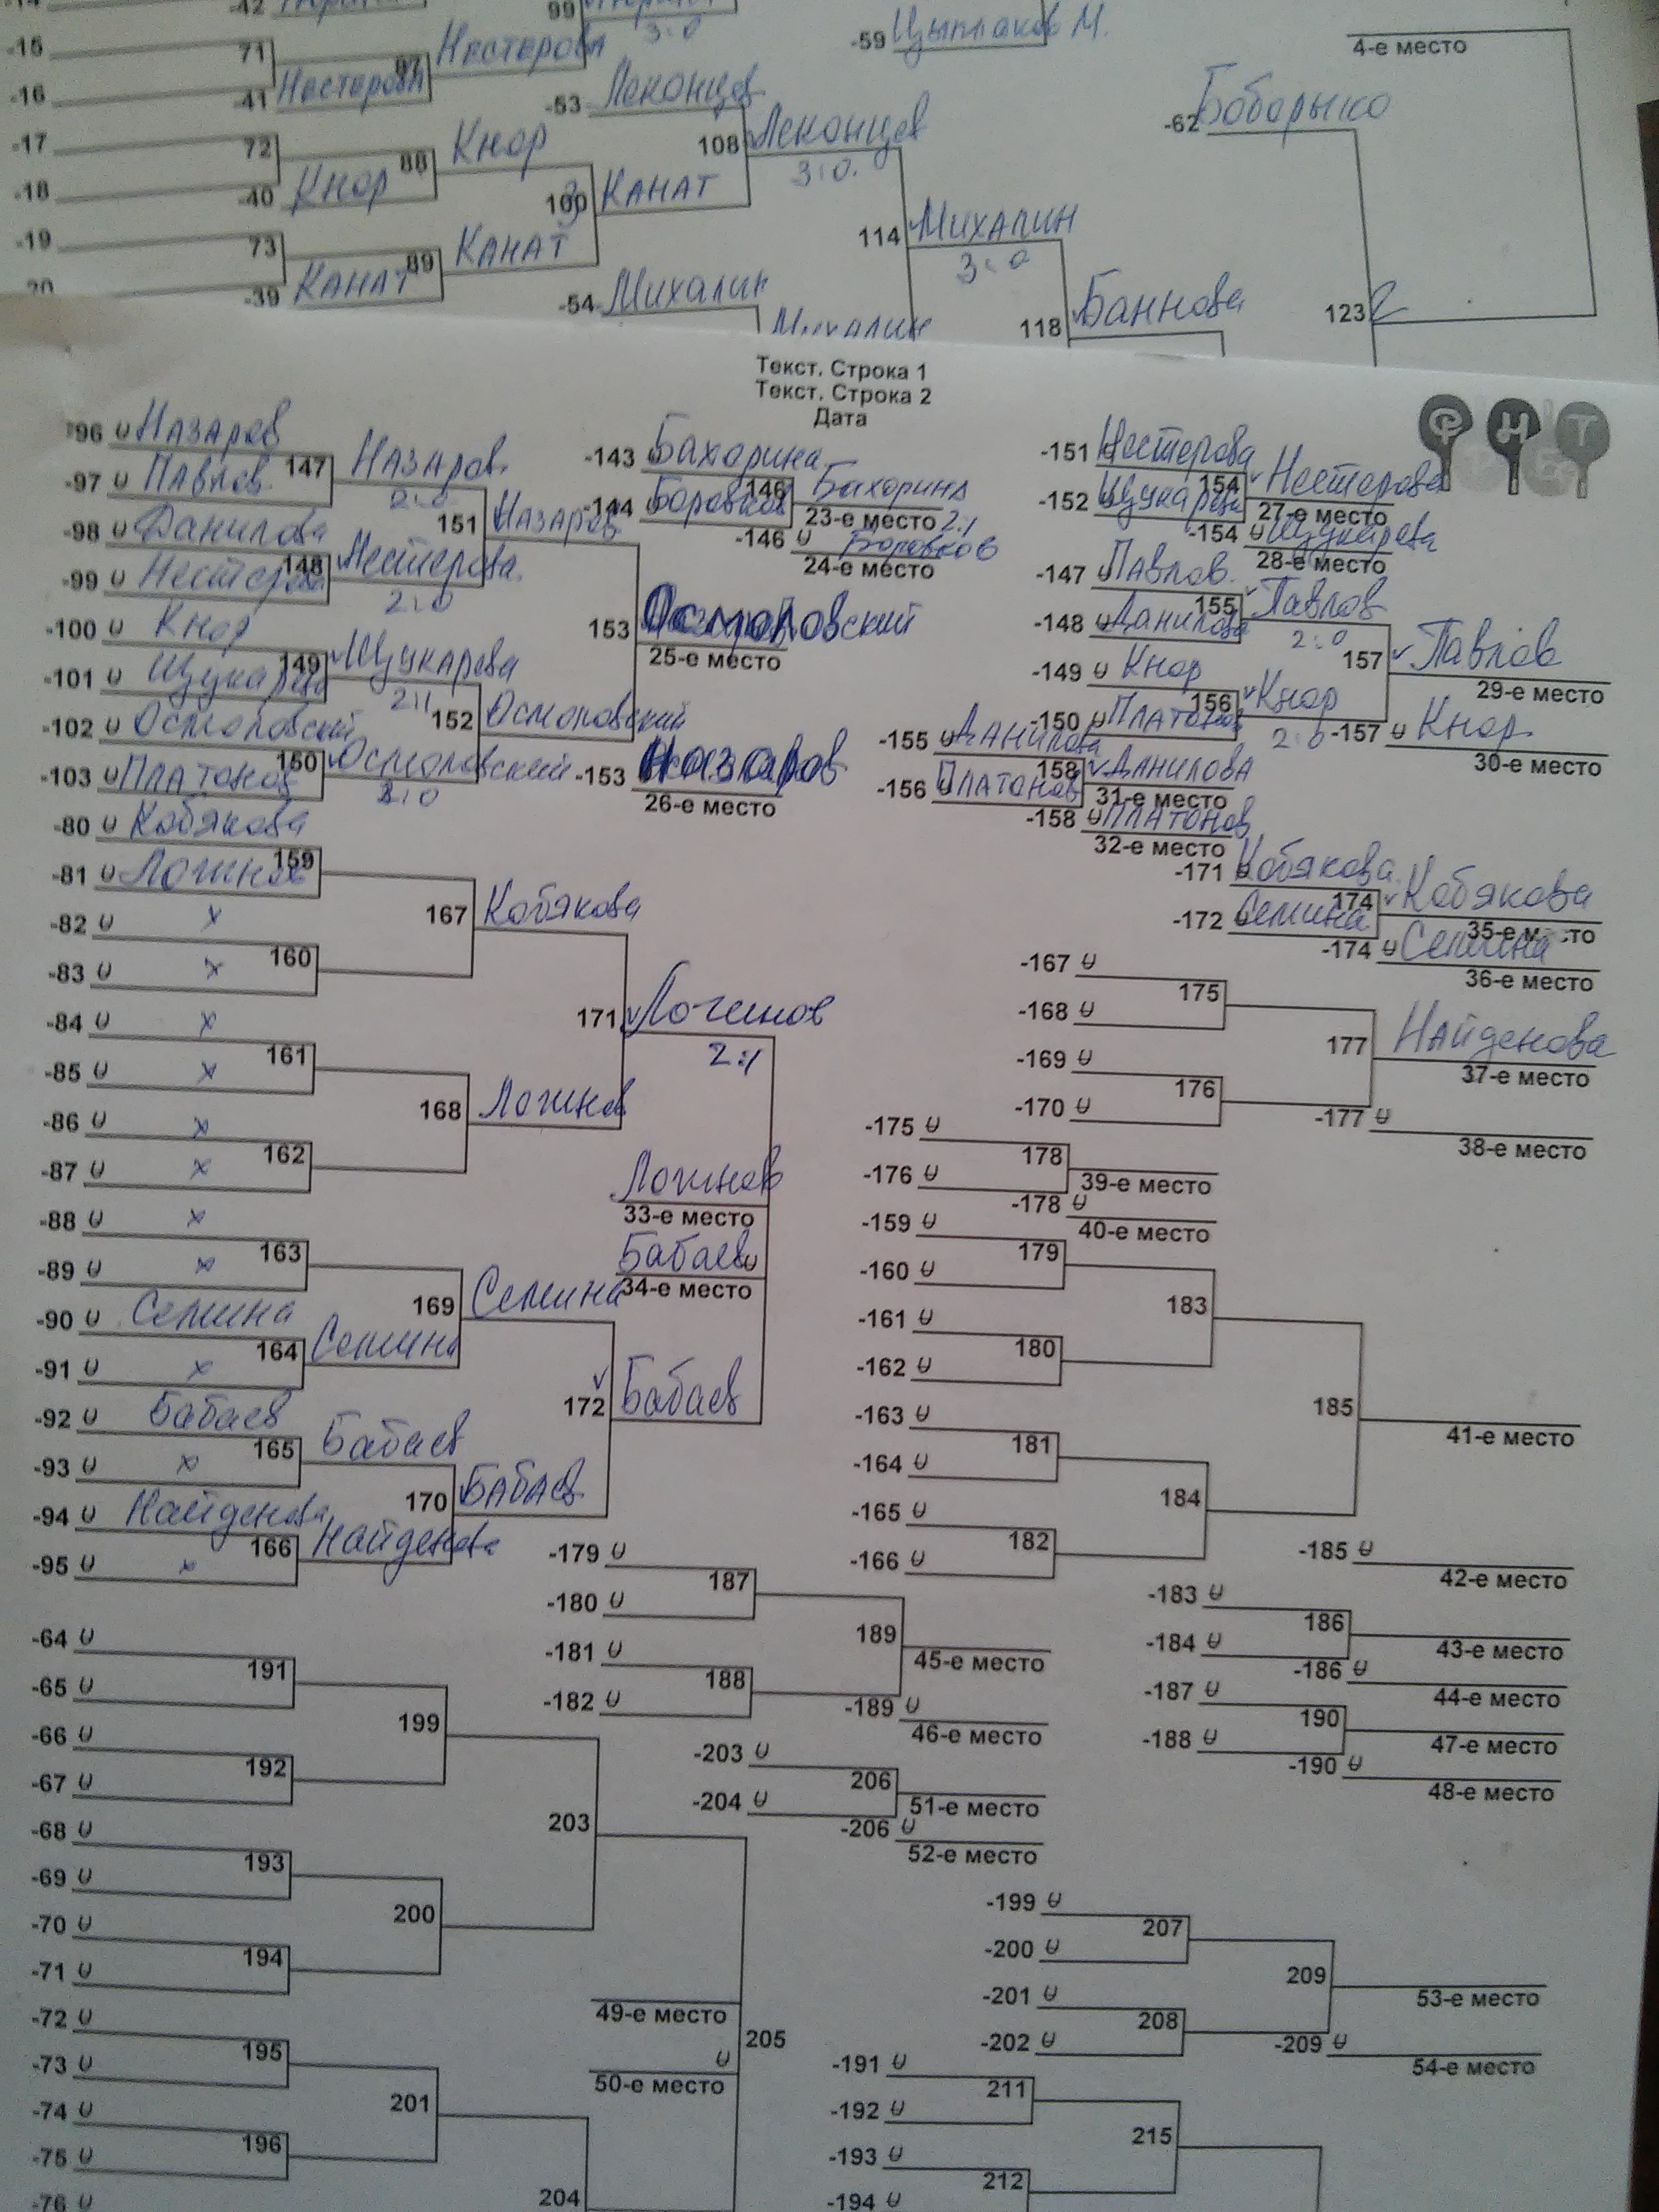 -42
99
3:0
-15
71
87
Нестерова
-59 Цыплаков М.
4-е место
-16
-41 Нестерова
-53 Леконцев
-62 Боборыко
-17
72
88
Кнор
108
Леконцев
3:0
-18
-40 Кнор
100
КАНАТ
-19
73
89
КАНАТ
114
Михалин
3:0
-39 КАНАТ
-54 Михалин
Михалин
118
Баннова
123
Текст. Строка 1
Текст. Строка 2
Дата
ФНТ
-96 Назаров
-97 Павлов
147
Назаров
2:0
-98 Данилова
-99 Нестерова
148
Нестерова
2:0
151
Назаров
-100 Кнор
-101 Щукарева
149
Щукарева
2:1
-102 Осмоловский
-103 Платонов
150
Осмоловский
2:0
152
Осмоловский
153
Осмоловский
25-е место
-153 Назаров
26-е место
-143 Бахорина
-144 Боровков
146
Бахорина
23-е место 2:1
-146 Боровков
24-е место
-151 Нестерова
-152 Щукарева
154
Нестерова
27-е место
-154 Щукарева
28-е место
-147 Павлов
-148 Данилова
155
Павлов
2:0
-149 Кнор
-150 Платонов
156
Кнор
2:0
157
Павлов
29-е место
-157 Кнор
30-е место
-155 Данилова
-156 Платонов
158
Данилова
31-е место
-158 Платонов
32-е место
-80 Кобякова
-81 Логинов
159
-82 x
-83 x
160
167
Кобякова
-84 x
-85 x
161
-86 x
-87 x
162
168
Логинов
171
Логинов
2:1
-88 x
-89 x
163
-90 Семина
-91 x
164
Семина
169
Семина
-92 Бабаев
-93 x
165
Бабаев
-94 Найденова
-95 x
166
Найденова
170
Бабаев
172
Бабаев
Логинов
33-е место
Бабаев
34-е место
-171 Кобякова
-172 Семина
174
Кобякова
35-е место
-174 Семина
36-е место
-167
-168
175
-169
-170
176
177
Найденова
37-е место
-177
38-е место
-175
-176
178
39-е место
-178
40-е место
-159
-160
179
-161
-162
180
183
-163
-164
181
-165
-166
182
184
185
41-е место
-185
42-е место
-179
-180
187
-181
-182
188
189
45-е место
-189
46-е место
-183
-184
186
43-е место
-186
44-е место
-187
-188
190
47-е место
-190
48-е место
-64
-65
191
-66
-67
192
199
-68
-69
193
-70
-71
194
200
203
-72
-73
195
-74
-75
196
201
-76
204
49-е место
205
50-е место
-203
-204
206
51-е место
-206
52-е место
-199
-200
207
-201
-202
208
209
53-е место
-209
54-е место
-191
-192
211
-193
-194
212
215